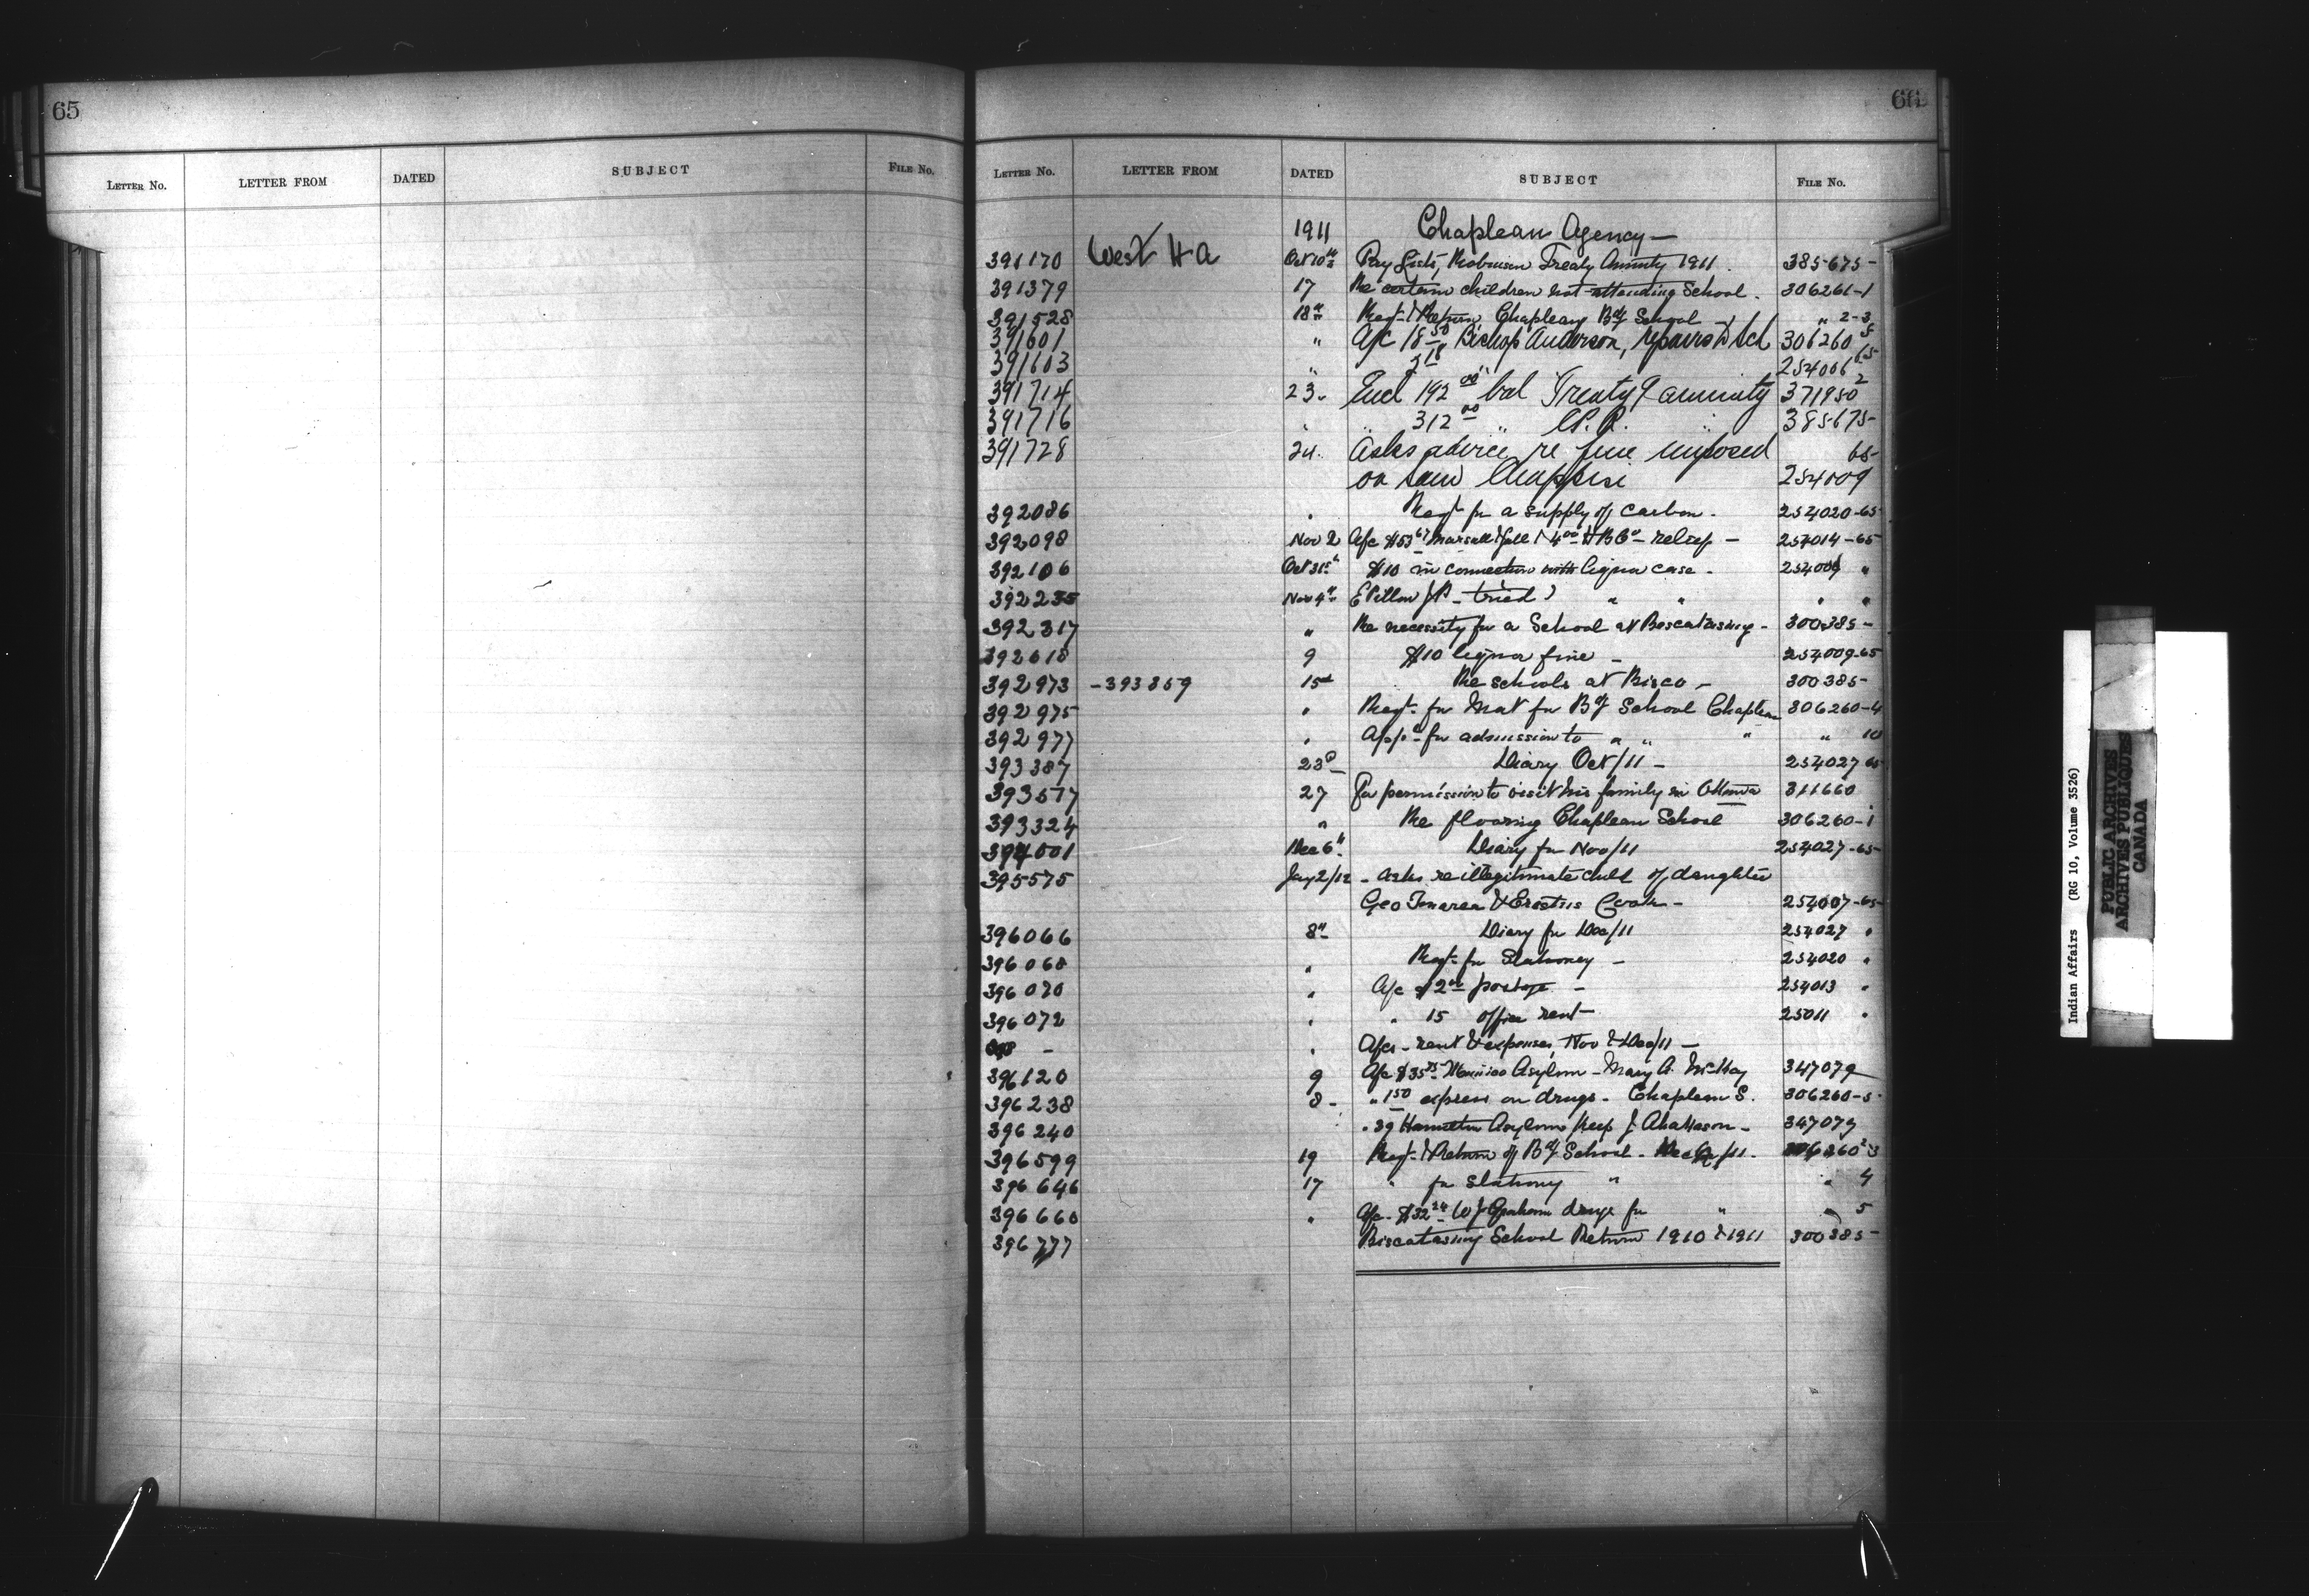 65
LETTER NO. LETTER FROM DATED SUBJECT FILE NO.
66
LETTER NO. LETTER FROM DATED SUBJECT FILE NO.
1911 Chapleau Agency—
391170 West H a Oct 10th Pay Lists, Robinson Treaty Annuity 1911. 385675-
391379 17 Re certain children not attending School. 306261-1
391528 18th Reqt & Return Chapleau Bdg School " 2-3
391601 " A/c 18 50 Bishop Anderson, repairs Sch 306260 5
391603 " 254006 65
391714 23. Encl 192 00 bal Treaty 9 annuity 371950 2
391716 " " 312 00 " " 385675-
391728 24. Asks advice re fine imposed 65-
on Sam Chappise 254009
392086 " Reqt for a supply of carbon. 254020-65
392098 Nov 2 A/c $53 67 & 4 00 H B Co - relief - 254014-65
392106 Oct 31st $10 in connection with liquor case. 254009 "
392235 Nov 4th tried " " " "
392317 " Re necessity for a School at Biscatasing- 300385-
392618 9 $10 liquor fine - 254009-65
392973 -393859 15th Re schools at Bisco - 300385-
392975 " Reqt. for Mat for Bdg School Chapleau 306260-4
392977 " Appn for admission to " " " " 10
393387 23d Diary Oct/11 - 254027 65
393517 27 For permission to visit his family in Ottawa 311660
393324 " Re flooring Chapleau School 306260-1
394001 Dec 6th Diary for Nov/11 254027-65-
395575 Jany 2/12 - Asks re illegitimate child of daughter
Geo & Erastus Cook- 254007-65-
396066 8th Diary for Dec/11 254027 "
396068 " Reqt. for Stationery - 254020 "
396070 " A/c $2 postage - 254013 "
396072 " " 15 office rent- 25011 "
- " A/cs - rent & expenses, Nov & Dec/11 -
396120 9 A/c $35 Mimico Asylum - Mary A. McKay 347079
396238 8- " 1 50 express on drugs - Chapleau S. 306260-5
396240 " 39 Hamilton Asylum keep J. 347079
396599 19 Reqt. & Return of Bdg School - Dec Qr/11. 306260 2-3
396646 17 " for Stationery " " 4
396660 " A/c - $32 24 W J Graham drugs for " " 5
396777 Biscatasing School Return 1910 & 1911 300385-
Indian Affairs (RG 10, Volume 3526)
PUBLIC ARCHIVES
ARCHIVES PUBLIQUES
CANADA